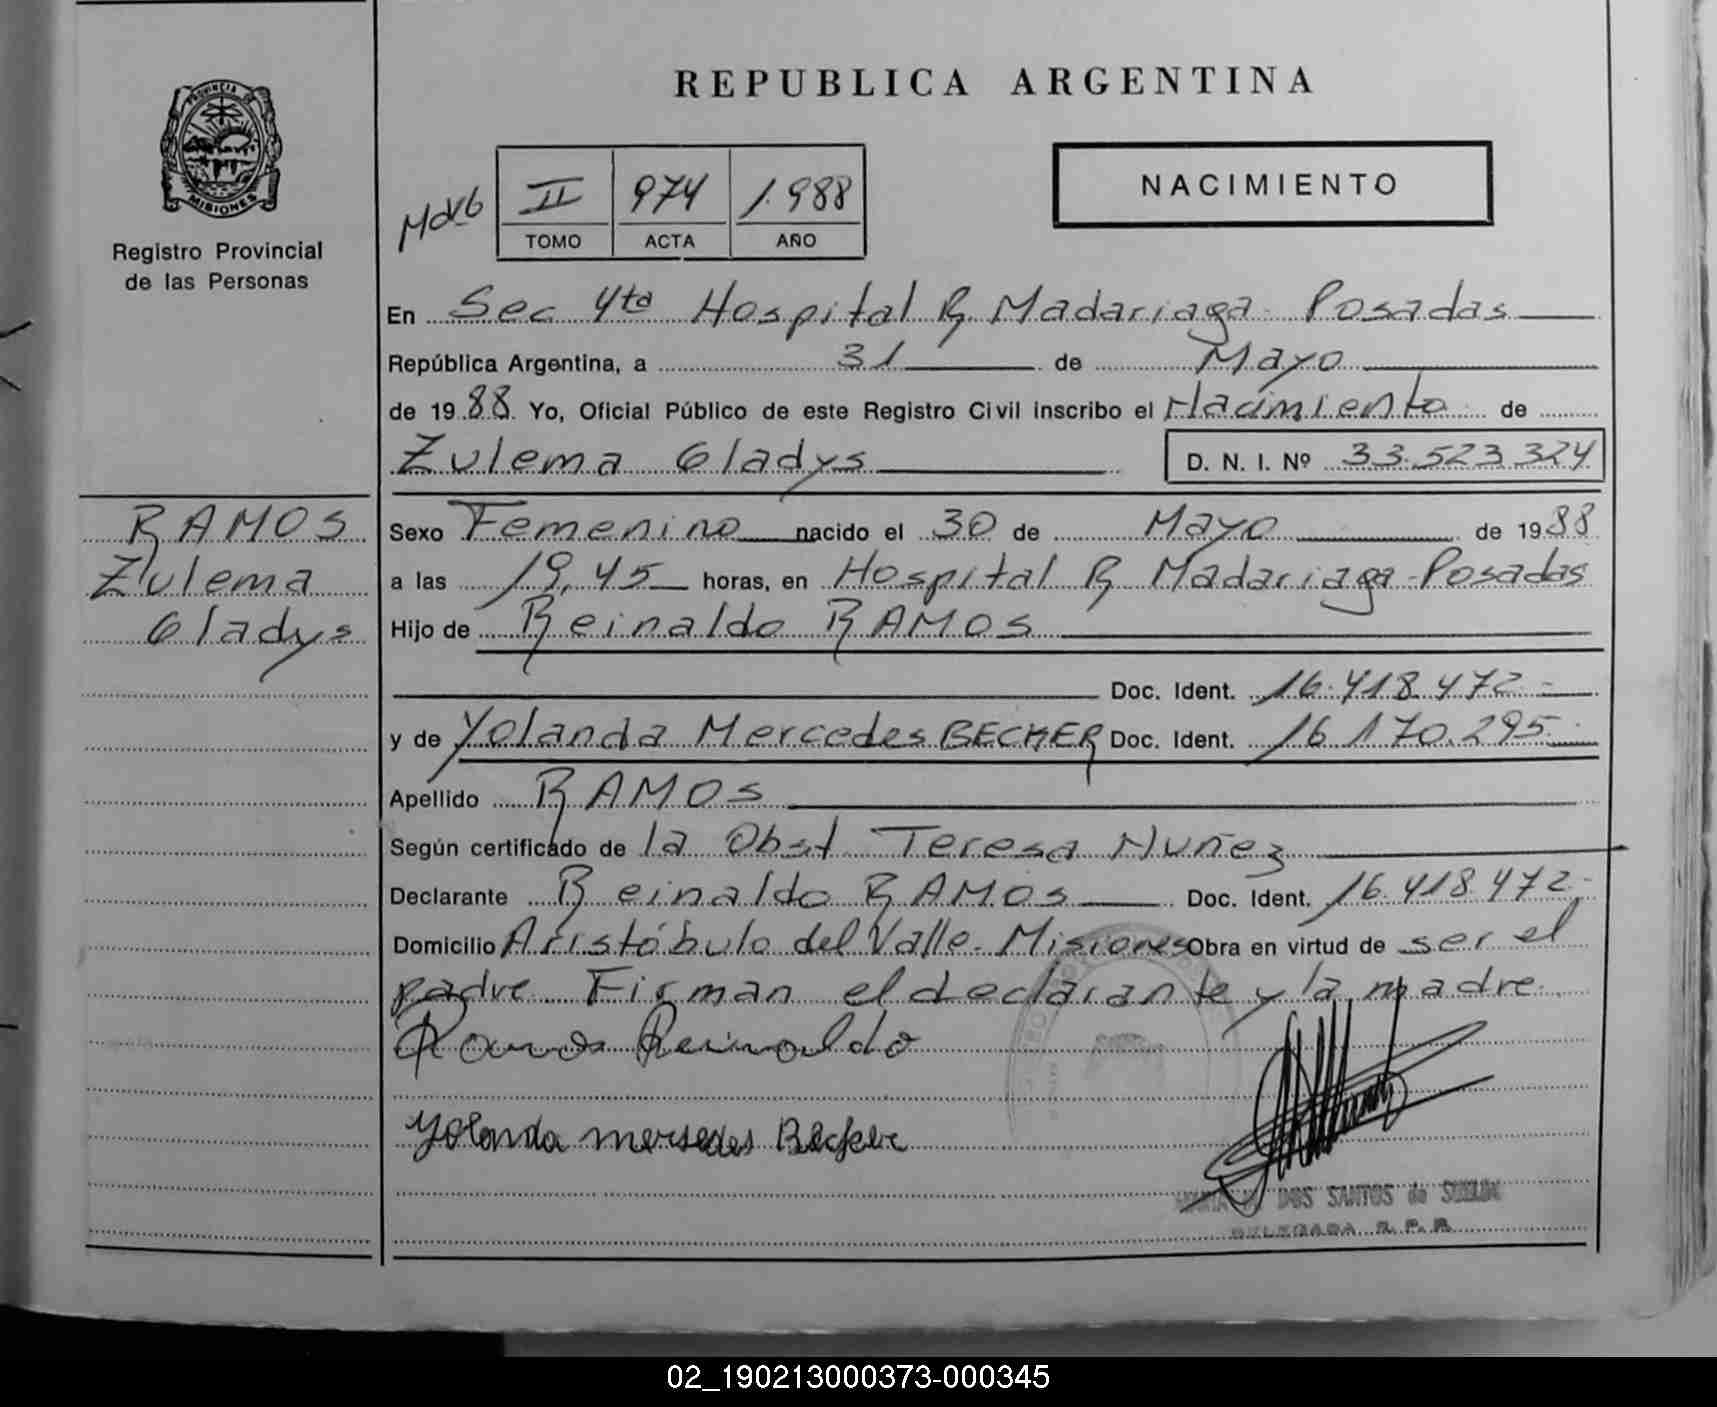 REPUBLICA ARGENTINA
PROVINCIA DE
MISIONES
Registro Provincial
de las Personas
II 974 1.988
TOMO ACTA AÑO
NACIMIENTO
En Sec 4ta Hospital R. Madariaga - Posadas
República Argentina, a 31 de Mayo
de 1988 Yo, Oficial Público de este Registro Civil inscribo el Nacimiento de
Zulema Gladys D. N. I. Nº 33.523.324
RAMOS
Zulema
Gladys
Sexo Femenino nacido el 30 de Mayo de 1988
a las 19,45 horas, en Hospital R. Madariaga - Posadas
Hijo de Reinaldo RAMOS
Doc. Ident. 16.418.472.-
y de Yolanda Mercedes BECKER Doc. Ident. 16.170.295.-
Apellido RAMOS
Según certificado de la Obst Teresa Nuñez
Declarante Reinaldo RAMOS Doc. Ident. 16.418.472.-
Domicilio Aristóbulo del Valle - Misiones Obra en virtud de ser el
padre Firman el declarante y la madre.
Ramos Reinaldo
Yolanda mersedes Becker
DOS SANTOS de
DELEGADA R. P. P.
02_190213000373-000345